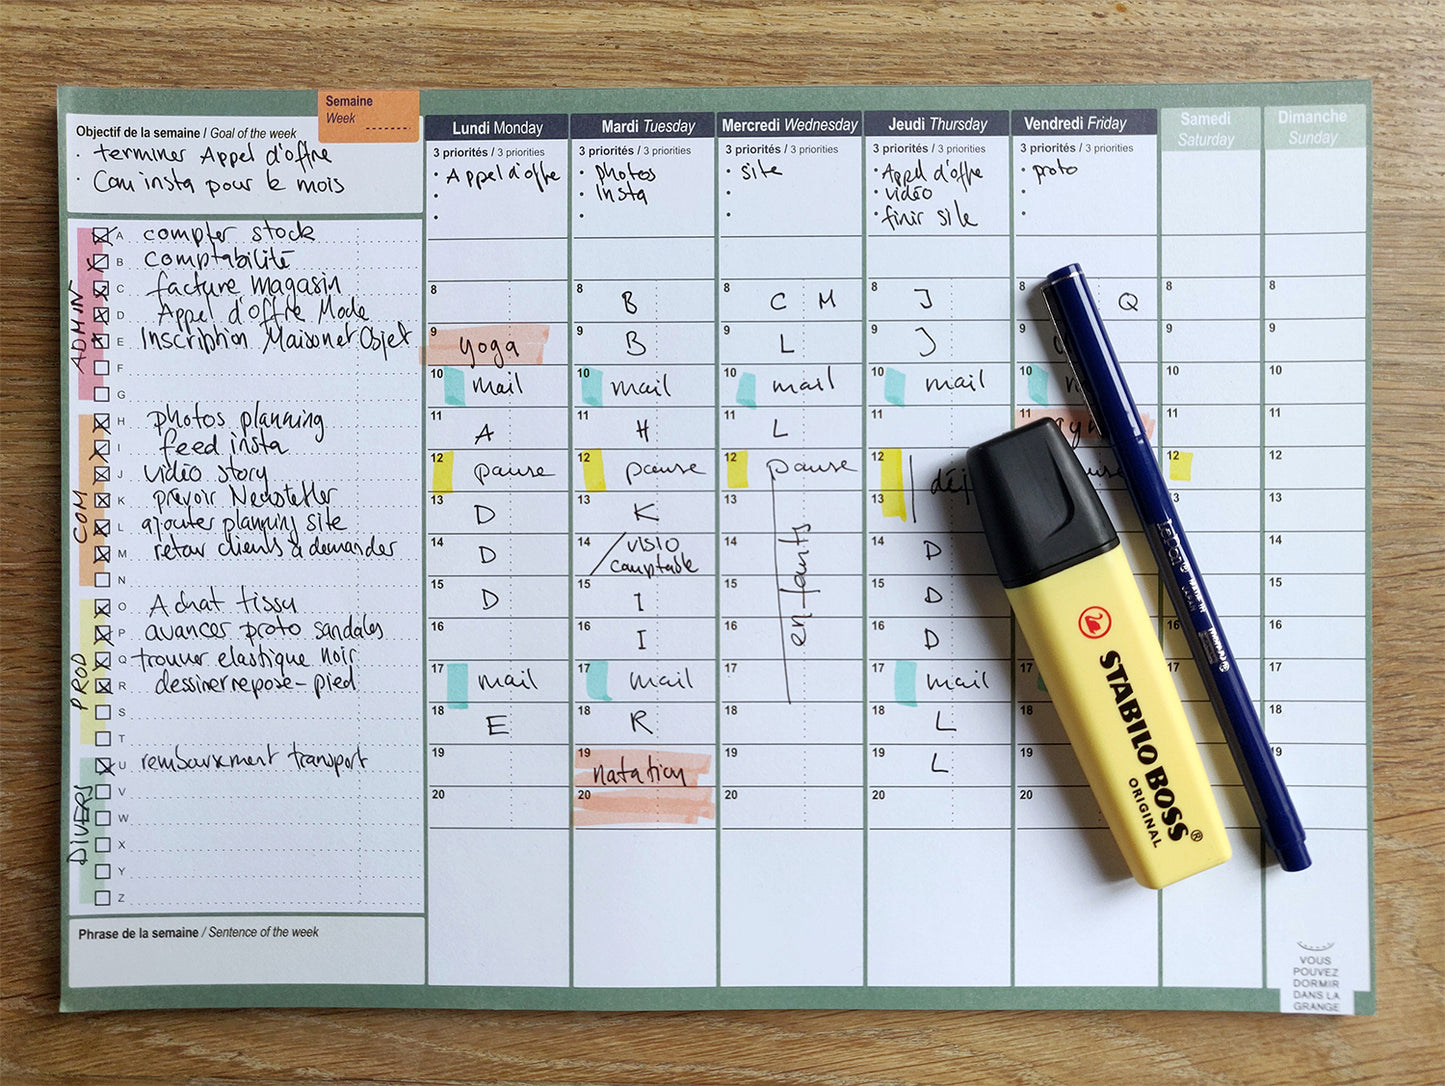 Semaine
Week
Objectif de la semaine / Goal of the week
· terminer Appel d'offre
· Com insta pour le mois
ADMIN
A compter stock
B comptabilité
C facture magasin
D Appel d'offre Mode
E Inscription Maison et Objet
F
G
COM
H photos planning
I feed insta
J vidéo story
K prévoir Newsletter
L ajouter planning site
M retour clients à demander
N
PROD
O Achat tissu
P avancer proto sandales
Q trouver elastique noir
R dessiner repose-pied
S
T
DIVERS
U remboursement transport
V
W
X
Y
Z
Phrase de la semaine / Sentence of the week
Lundi Monday
3 priorités / 3 priorities
· Appel d'offre
8
9 yoga
10 mail
11 A
12 pause
13 D
14 D
15 D
16
17 mail
18 E
19
20
Mardi Tuesday
3 priorités / 3 priorities
· photos
· Insta
8 B
9 B
10 mail
11 H
12 pause
13 K
14 visio
comptable
15 I
16 I
17 mail
18 R
19 natation
20
Mercredi Wednesday
3 priorités / 3 priorities
· site
8 C M
9 L
10 mail
11 L
12 pause
13
14
enfants
15
16
17
18
19
20
Jeudi Thursday
3 priorités / 3 priorities
· Appel d'offre
· vidéo
· finir site
8 J
9 J
10 mail
11
12
13
14 D
15 D
16 D
17 mail
18 L
19 L
20
Vendredi Friday
3 priorités / 3 priorities
· proto
8 Q
9
10
11
12
13
17
18
19
20
Samedi
Saturday
8
9
10
11
12
13
14
15
16
17
Dimanche
Sunday
8
9
10
11
12
13
14
15
16
17
18
19
20
STABILO BOSS
ORIGINAL
VOUS
POUVEZ
DORMIR
DANS LA
GRANGE